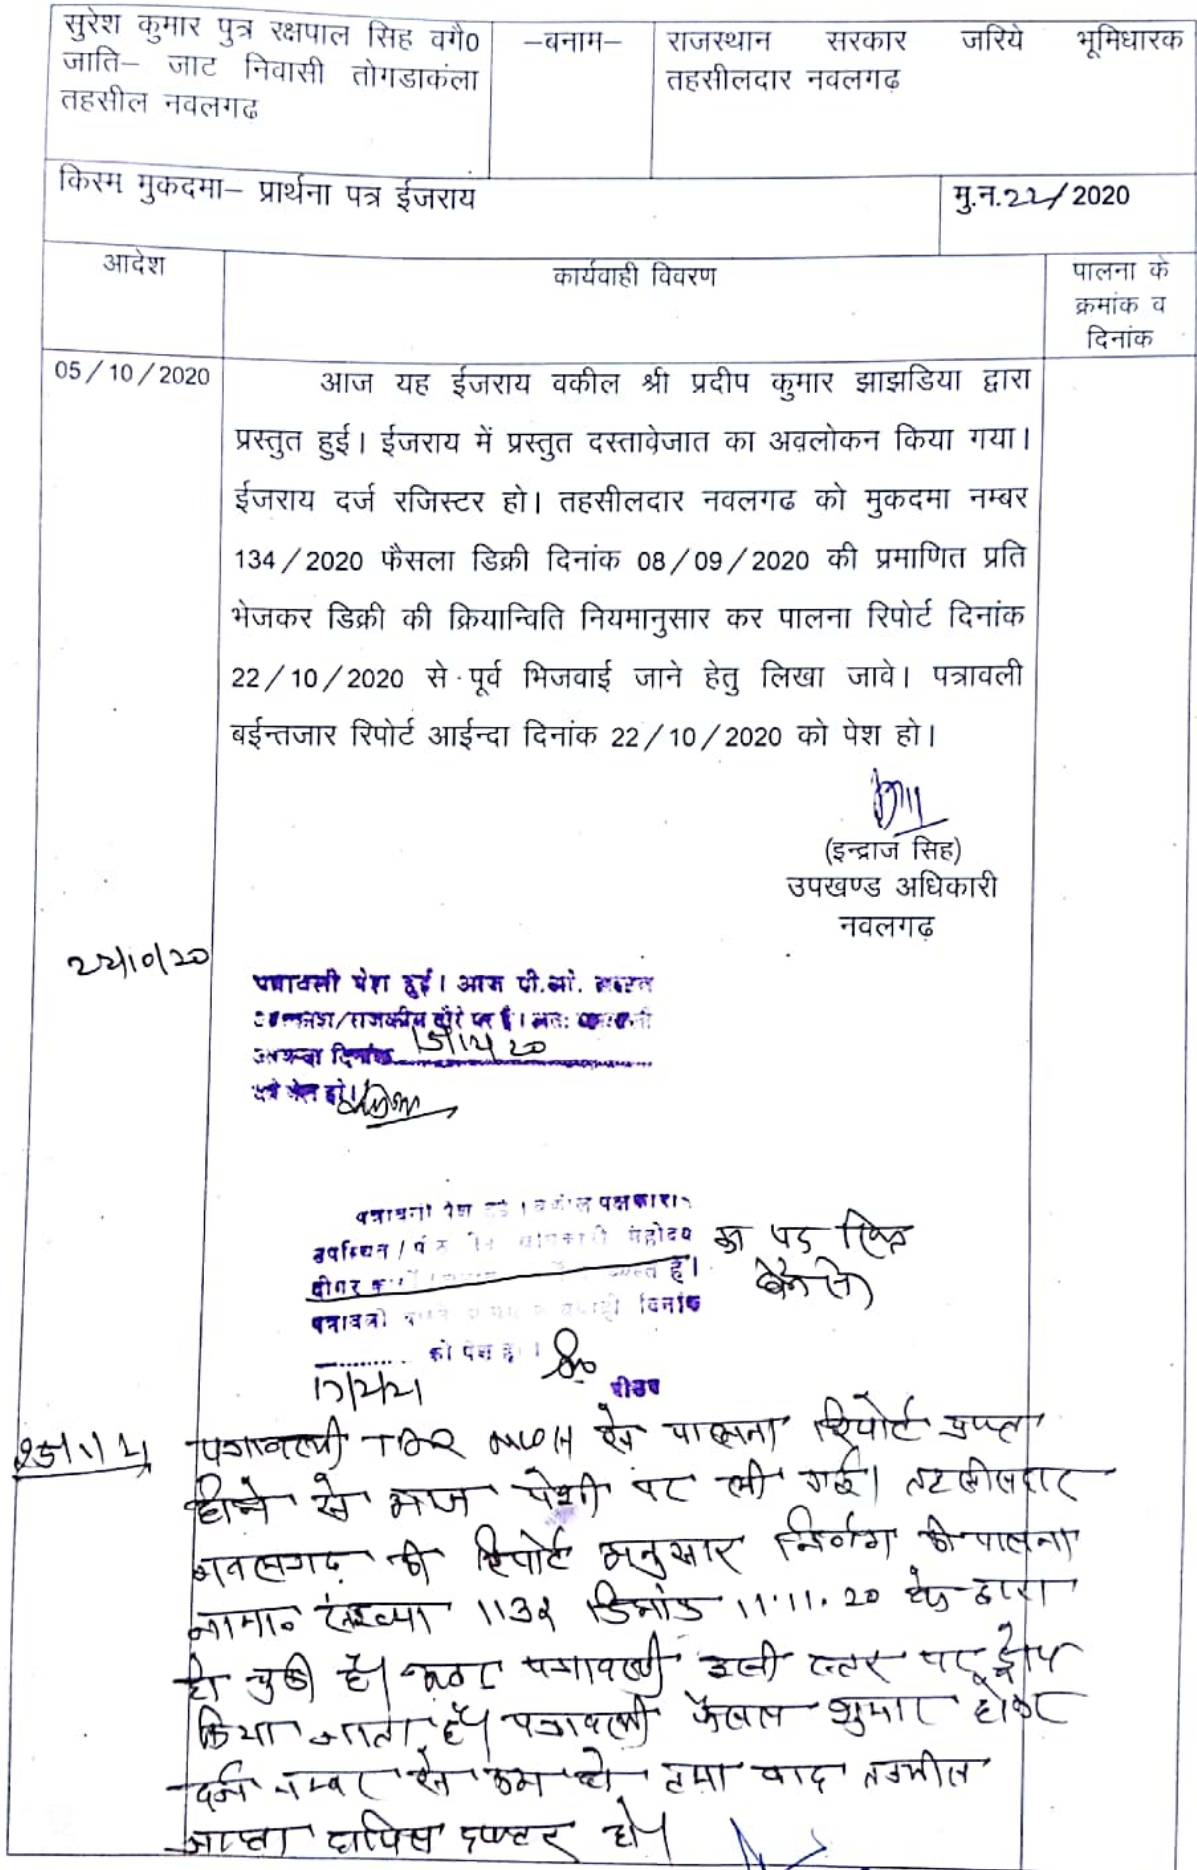 सुरेश कुमार पुत्र रक्षपाल सिह वगै0
जाति– जाट निवासी तोगडाकंला
तहसील नवलगढ
–बनाम–
राजस्थान सरकार जरिये भूमिधारक
तहसीलदार नवलगढ़
किस्म मुकदमा– प्रार्थना पत्र ईजराय
मु.न.22/2020
आदेश
कार्यवाही विवरण
पालना के
क्रमांक व
दिनांक
05/10/2020
आज यह ईजराय वकील श्री प्रदीप कुमार झाझडिया द्वारा
प्रस्तुत हुई। ईजराय में प्रस्तुत दस्तावेजात का अवलोकन किया गया।
ईजराय दर्ज रजिस्टर हो। तहसीलदार नवलगढ को मुकदमा नम्बर
134/2020 फैसला डिक्री दिनांक 08/09/2020 की प्रमाणित प्रति
भेजकर डिक्री की क्रियान्विति नियमानुसार कर पालना रिपोर्ट दिनांक
22/10/2020 से पूर्व भिजवाई जाने हेतु लिखा जावे। पत्रावली
बईन्तजार रिपोर्ट आईन्दा दिनांक 22/10/2020 को पेश हो।
(इन्द्राज सिह)
उपखण्ड अधिकारी
नवलगढ़
22/10/20
पत्रावली पेश हुई। आज पी.ओ.
/राजकीय दौरे पर है। अतः
दिनांक
को पेश हो।
पत्रावली पेश हुई। वकील पक्षकारान
उपस्थित / महोदय का पद रिक्त
है। होने से
पत्रावली दिनांक
को पेश हो।
17/2/21
पत्रावली TDR से पालना रिपोर्ट प्राप्त
होने से आज पेशी पर ली गई। तहसीलदार
नवलगढ़ की रिपोर्ट अनुसार निर्णय की पालना
नामा० संख्या 1132 दिनांक 11.11.20 के द्वारा
हो चुकी है। अतः पत्रावली इसी स्तर पर ड्रोप
किया जाता है। पत्रावली फैसल शुमार होकर
दर्ज नम्बर से कम हो तथा बाद तकमील
जाप्ता दाखिल दफ्तर हो।